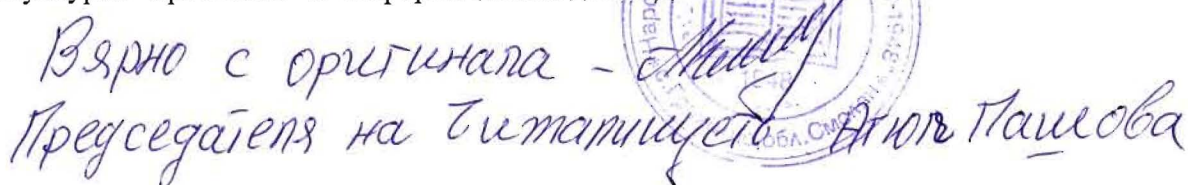 Вярно с оригинала -
Председателя на Читалището Пашова
обл. Смолян